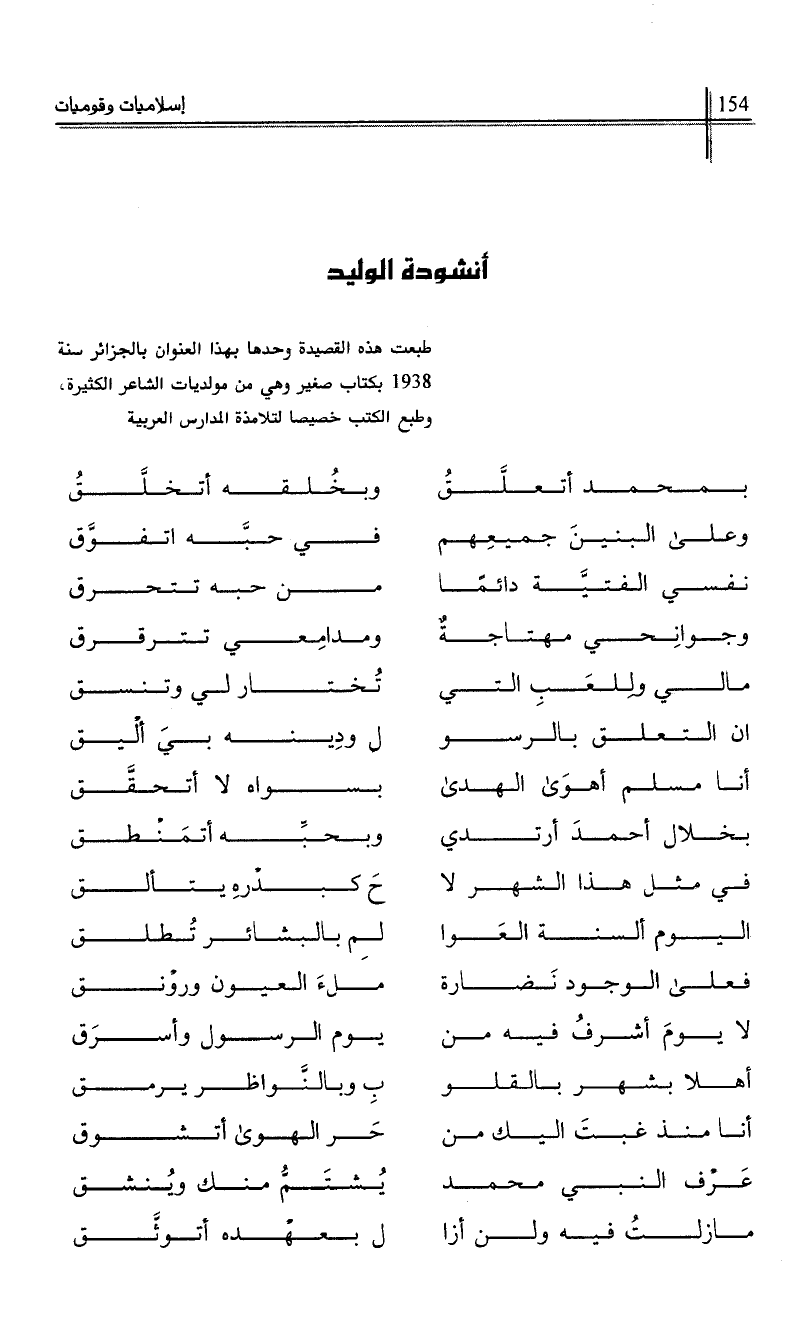 154 إسلاميات وقوميات
أنشودة الوليد
طبعت هذه القصيدة وحدها بهذا العنوان بالجزائر سنة
1938 بكتاب صغير وهي من مولديات الشاعر الكثيرة،
وطبع الكتب خصيصا لتلامذة المدارس العربية
بمحمد أتعلَّقُ وبخُلقه أتخلَّقُ
وعلى البنينَ جميعِهم في حبَّه اتفوَّق
نفسي الفتيَّة دائمًا من حبه تتحرق
وجوانِحي مهتاجةٌ ومدامِعي تترقرق
مالي ولِلعَبِ التي تُختار لي وتنسق
ان التعلق بالرسو ل ودِينه بيَ ألْيق
أنا مسلم أهوَى الهدى بسواه لا أتحقَّق
بخلال أحمدَ أرتدي وبحبِّه أتمَنْطق
في مثل هذا الشهر لا حَ كبدْرهِ يتألق
اليوم ألسنة العَوا لمِ بالبشائر تُطلق
فعلى الوجود نَضارة ملءَ العيون وروْنق
لا يومَ أشرفُ فيه من يوم الرسول وأسرَق
أهلا بشهر بالقلو بِ وبالنَّواظر يرمق
أنا منذ غبتَ اليك من حَر الهوى أتشوق
عَرْف النبي محمد يُشتَمُّ منك ويُنشق
مازلتُ فيه ولن أزا ل بعهْده أتوثَّق